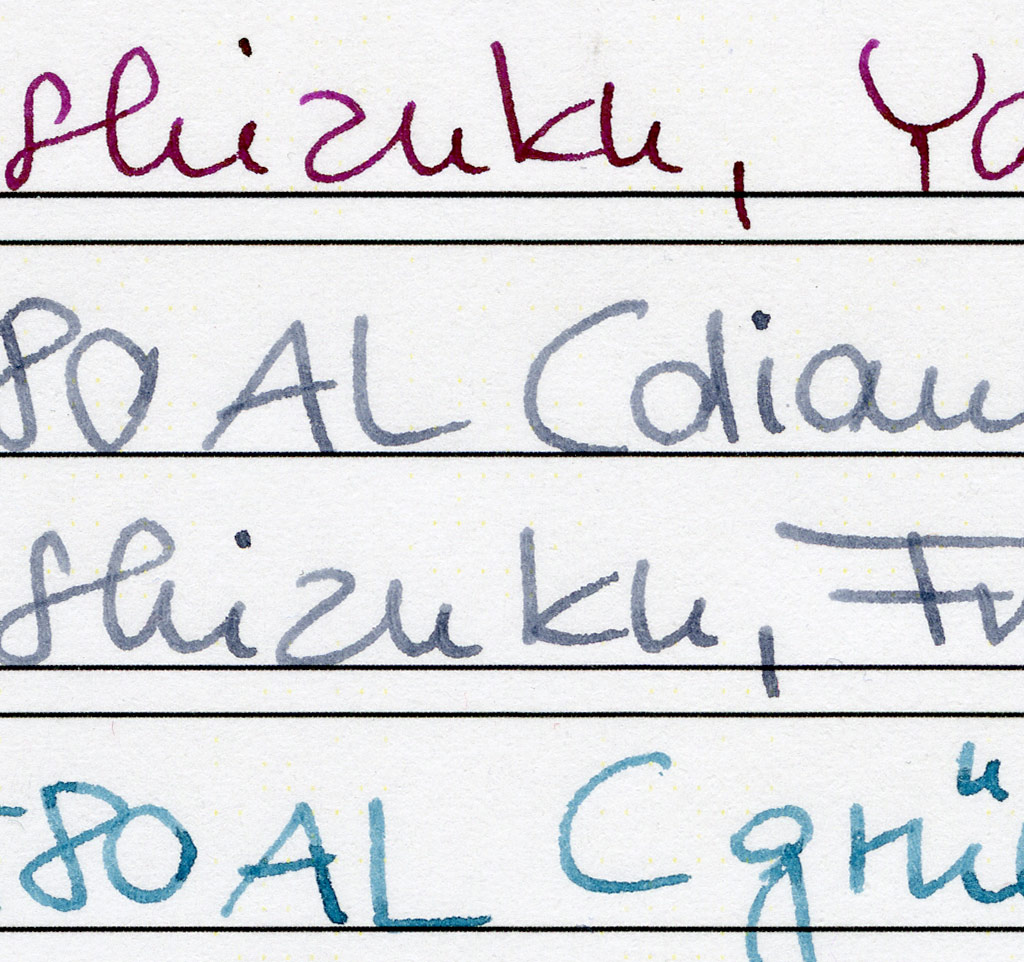 shizuku, Ya
80 AL Cdian
shizuku, Fu
-80 AL Cgrü